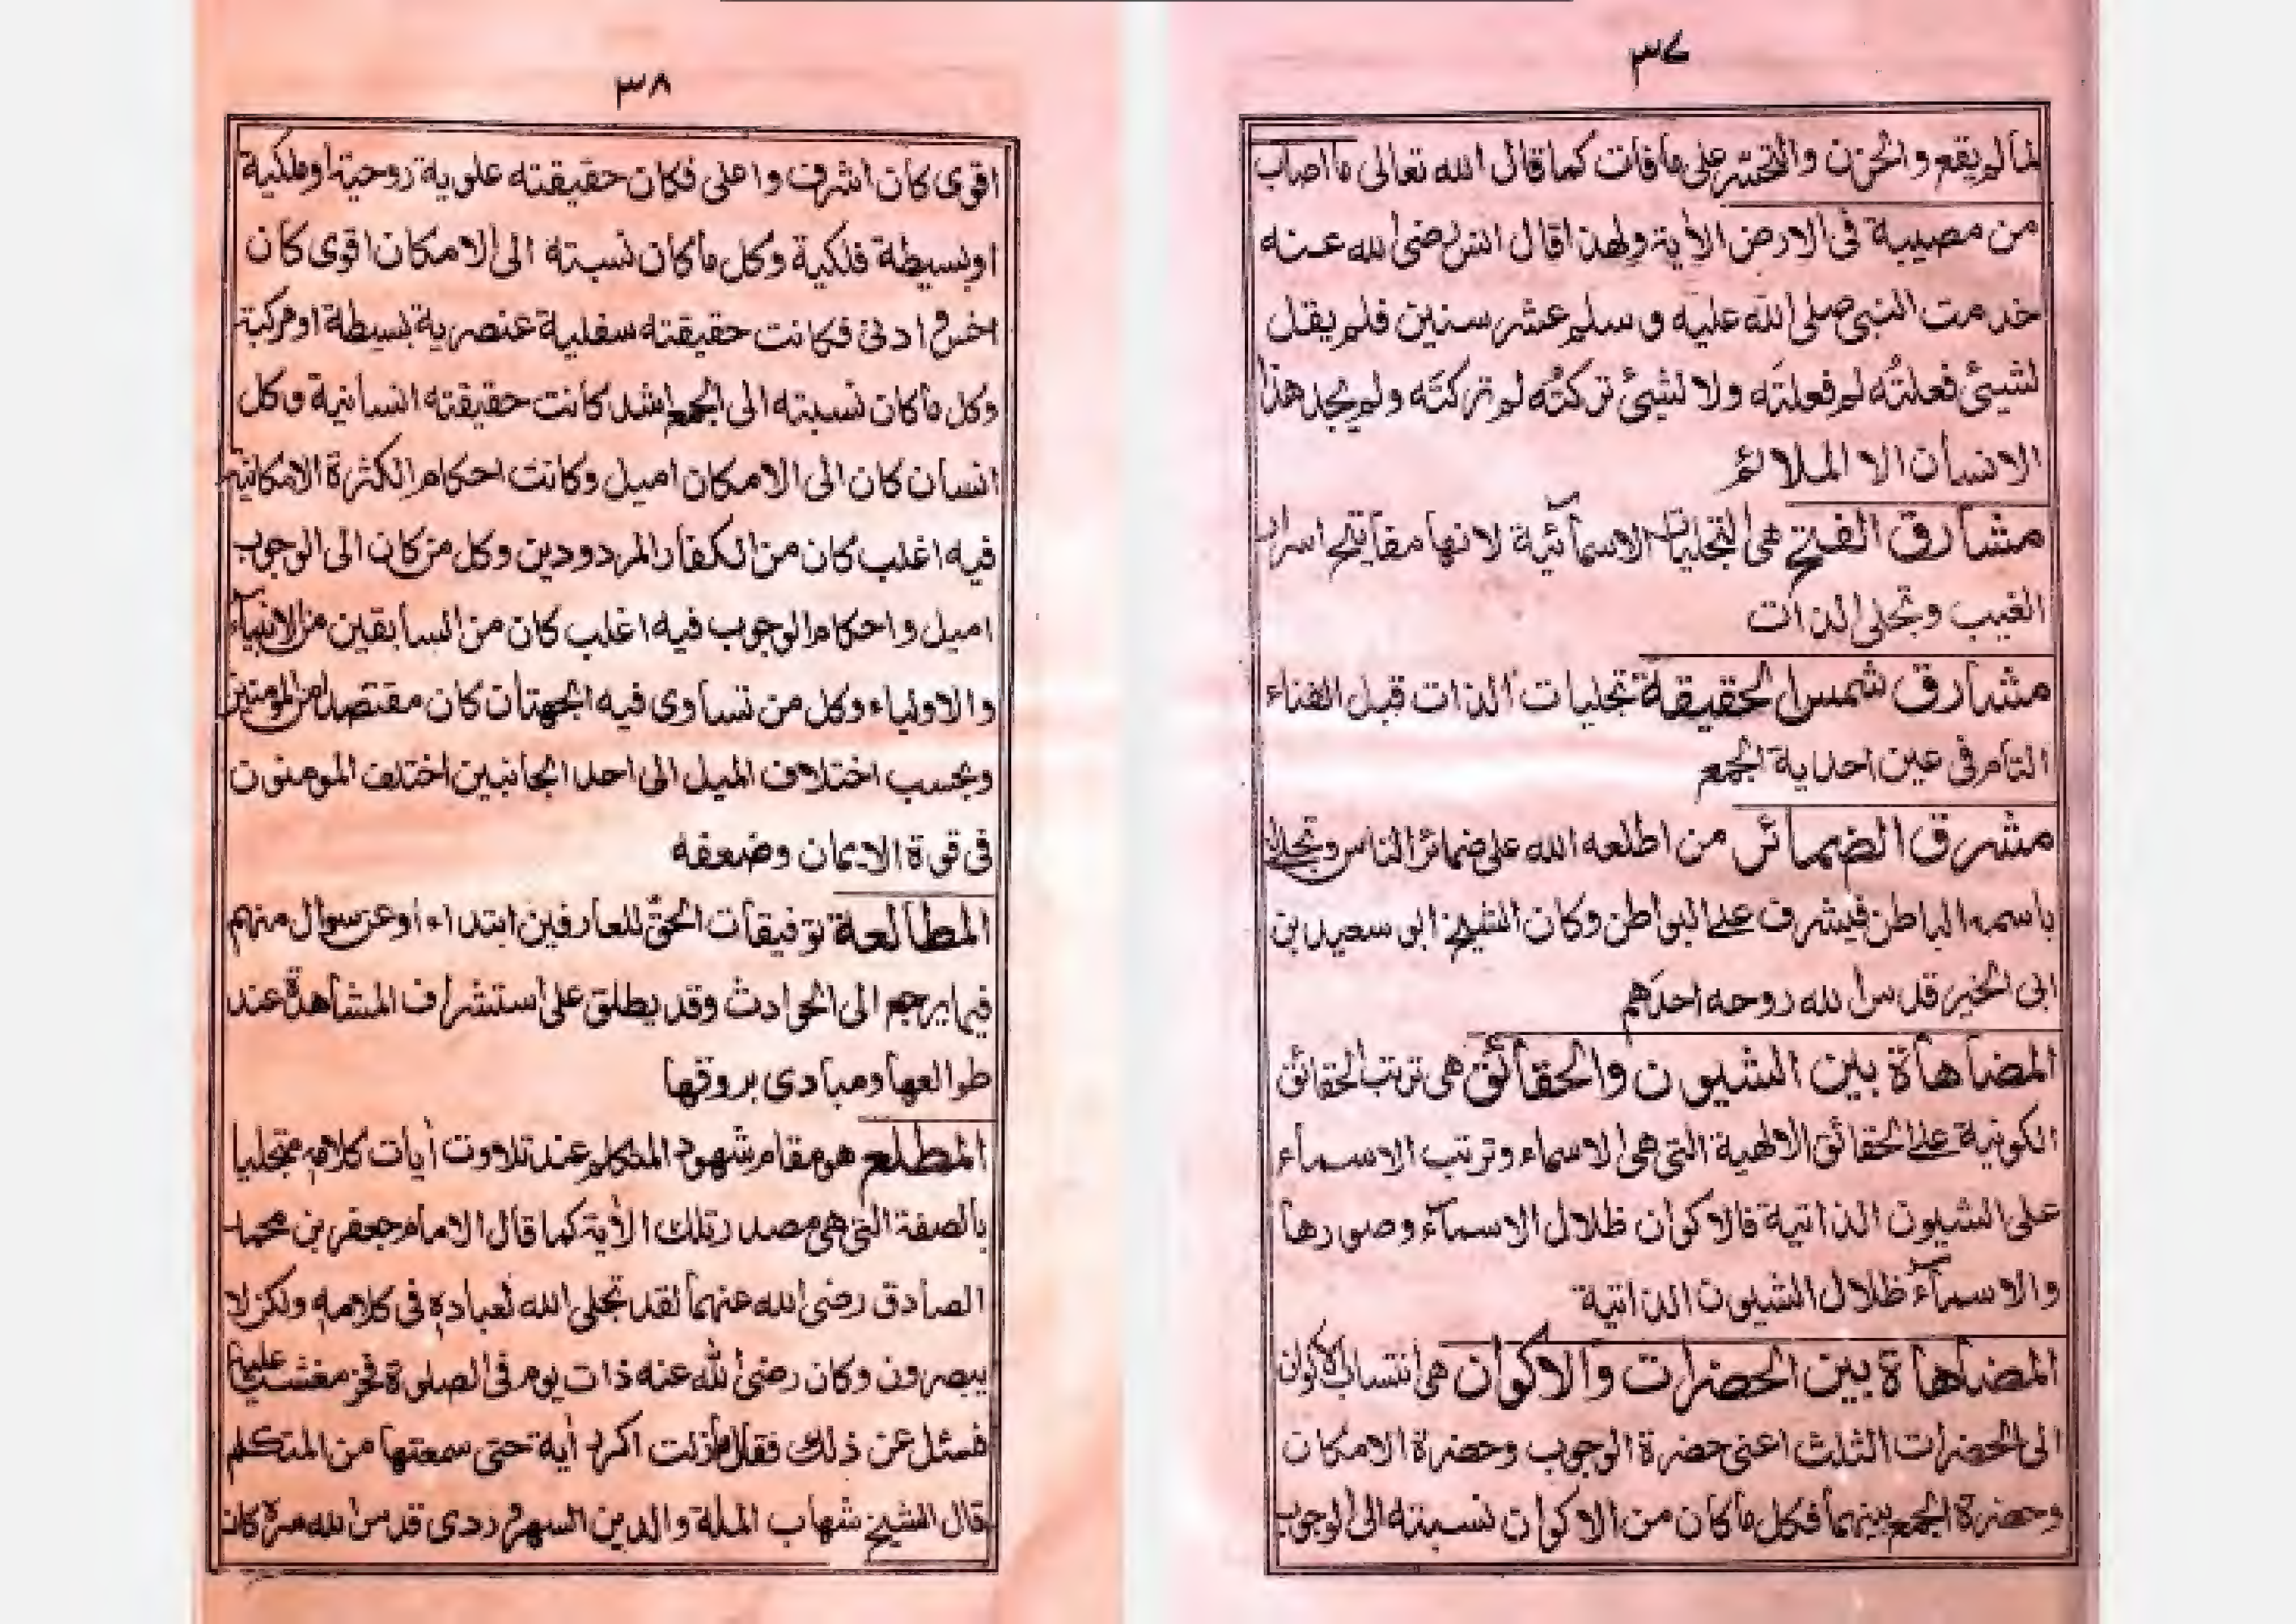 ٣٧
لما لم يقع والحزن والتحسر على ما فات كما قال الله تعالى ما اصاب
من مصيبة فى الارض الأية ولهذا قال انس رضى الله عنه
خدمت النبى صلى الله عليه وسلم عشر سنين فلم يقل
لشيئ فعلتُه لم فعلتَه ولا لشيئ تركتُه لم تركتَه ولم يجد هذا
الانسان الا الملائم
مشارق الفتح هى التجليات الاسمآئية لانها مفاتيح اسرار
الغيب وتجلى الذات
مشارق شمس الحقيقة تجليات الذات قبل الفناء
التام فى عين احدية الجمع
مشرق الضمائر من اطلعه الله على ضمائر الناس وتجلى له
باسمه الباطن فيشرف على البواطن وكان الشيخ ابو سعيد بن
ابى الخير قدس الله روحه احدهم
المضاهاة بين الشيون والحقائق هى ترتب الحقائق
الكونية على الحقائق الالهية التى هى الاسماء وترتب الاسماء
على الشيون الذاتية فالاكوان ظلال الاسمآء وصورها
والاسمآء ظلال الشيون الذاتية
المضاهاة بين الحضرات والاكوان هى انتساب الاكوان
الى الحضرات الثلث اعنى حضرة الوجوب وحضرة الامكان
وحضرة الجمع بينهما فكل ما كان من الاكوان نسبته الى الوجوب
٣٨
اقوى كان اشرف واعلى فكان حقيقته علوية روحية او ملكية
او بسيطة فلكية وكل ما كان نسبته الى الامكان اقوى كان
اخس وادنى فكانت حقيقته سفلية عنصرية بسيطة او مركبة
وكل ما كان نسبته الى الجمع اشد كانت حقيقته انسانية وكل
انسان كان الى الامكان اميل وكانت احكام الكثرة الامكانية
فيه اغلب كان من الكفار المردودين وكل من كان الى الوجوب
اميل واحكام الوجوب فيه اغلب كان من السابقين من الانبيآء
والاولياء وكل من تساوى فيه الجهتان كان مقتصدا من المومنين
وبحسب اختلاف الميل الى احد الجانبين اختلف المومنون
فى قوة الايمان وضعفه
المطالعة توفيقات الحقّ للعارفين ابتداء او عن سوال منهم
فيما يرجع الى الحوادث وقد يطلق على استشراف المشاهدة عند
طوالعها ومبادى بروقها
المطلع هو مقام شهود المتكلم عند تلاوت أيات كلامه متجليا
بالصفة التى هى مصدر تلك الأية كما قال الامام جعفر بن محمد
الصادق رضى الله عنهما لقد تجلى الله لعباده فى كلامه ولكن لا
يبصرون وكان رضى الله عنه ذات يوم فى الصلوة فخر مغشيا عليه
فسئل عن ذلك فقال ما زلت اكرر أية حتى سمعتها من المتكلم
قال الشيخ شهاب الملة والدين السهروردى قدس الله سره كان